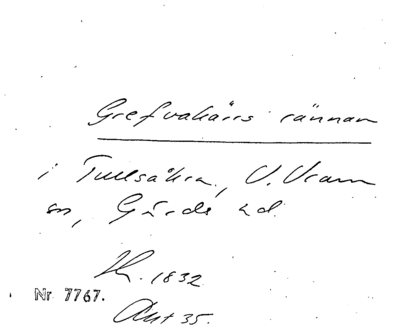 Grefvakärrs rännan
i Tullsåkra, V. Vram
sn, Gärds hd.
1832
Nr 7767.
Akt 35.